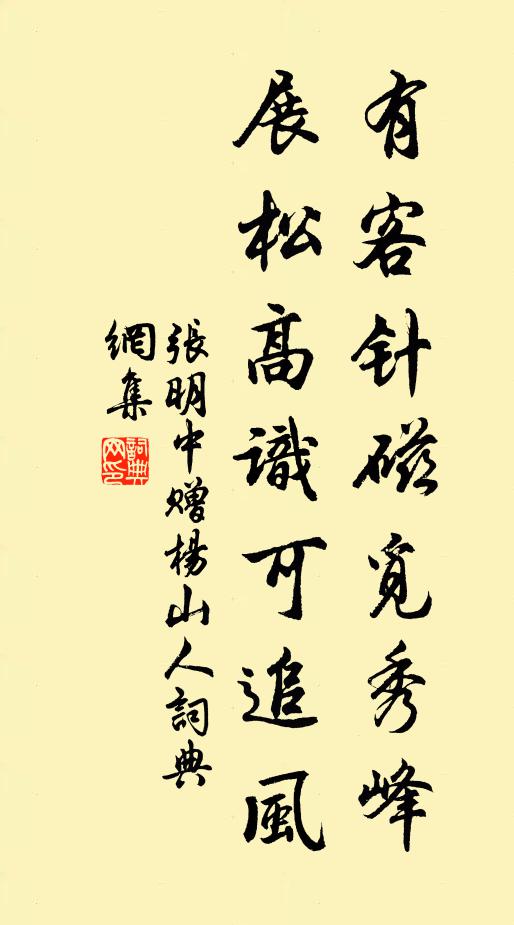 有客针磁觅秀峰
展松高識可追風
張明中赠楊山人詞典
網集
詞典
网印